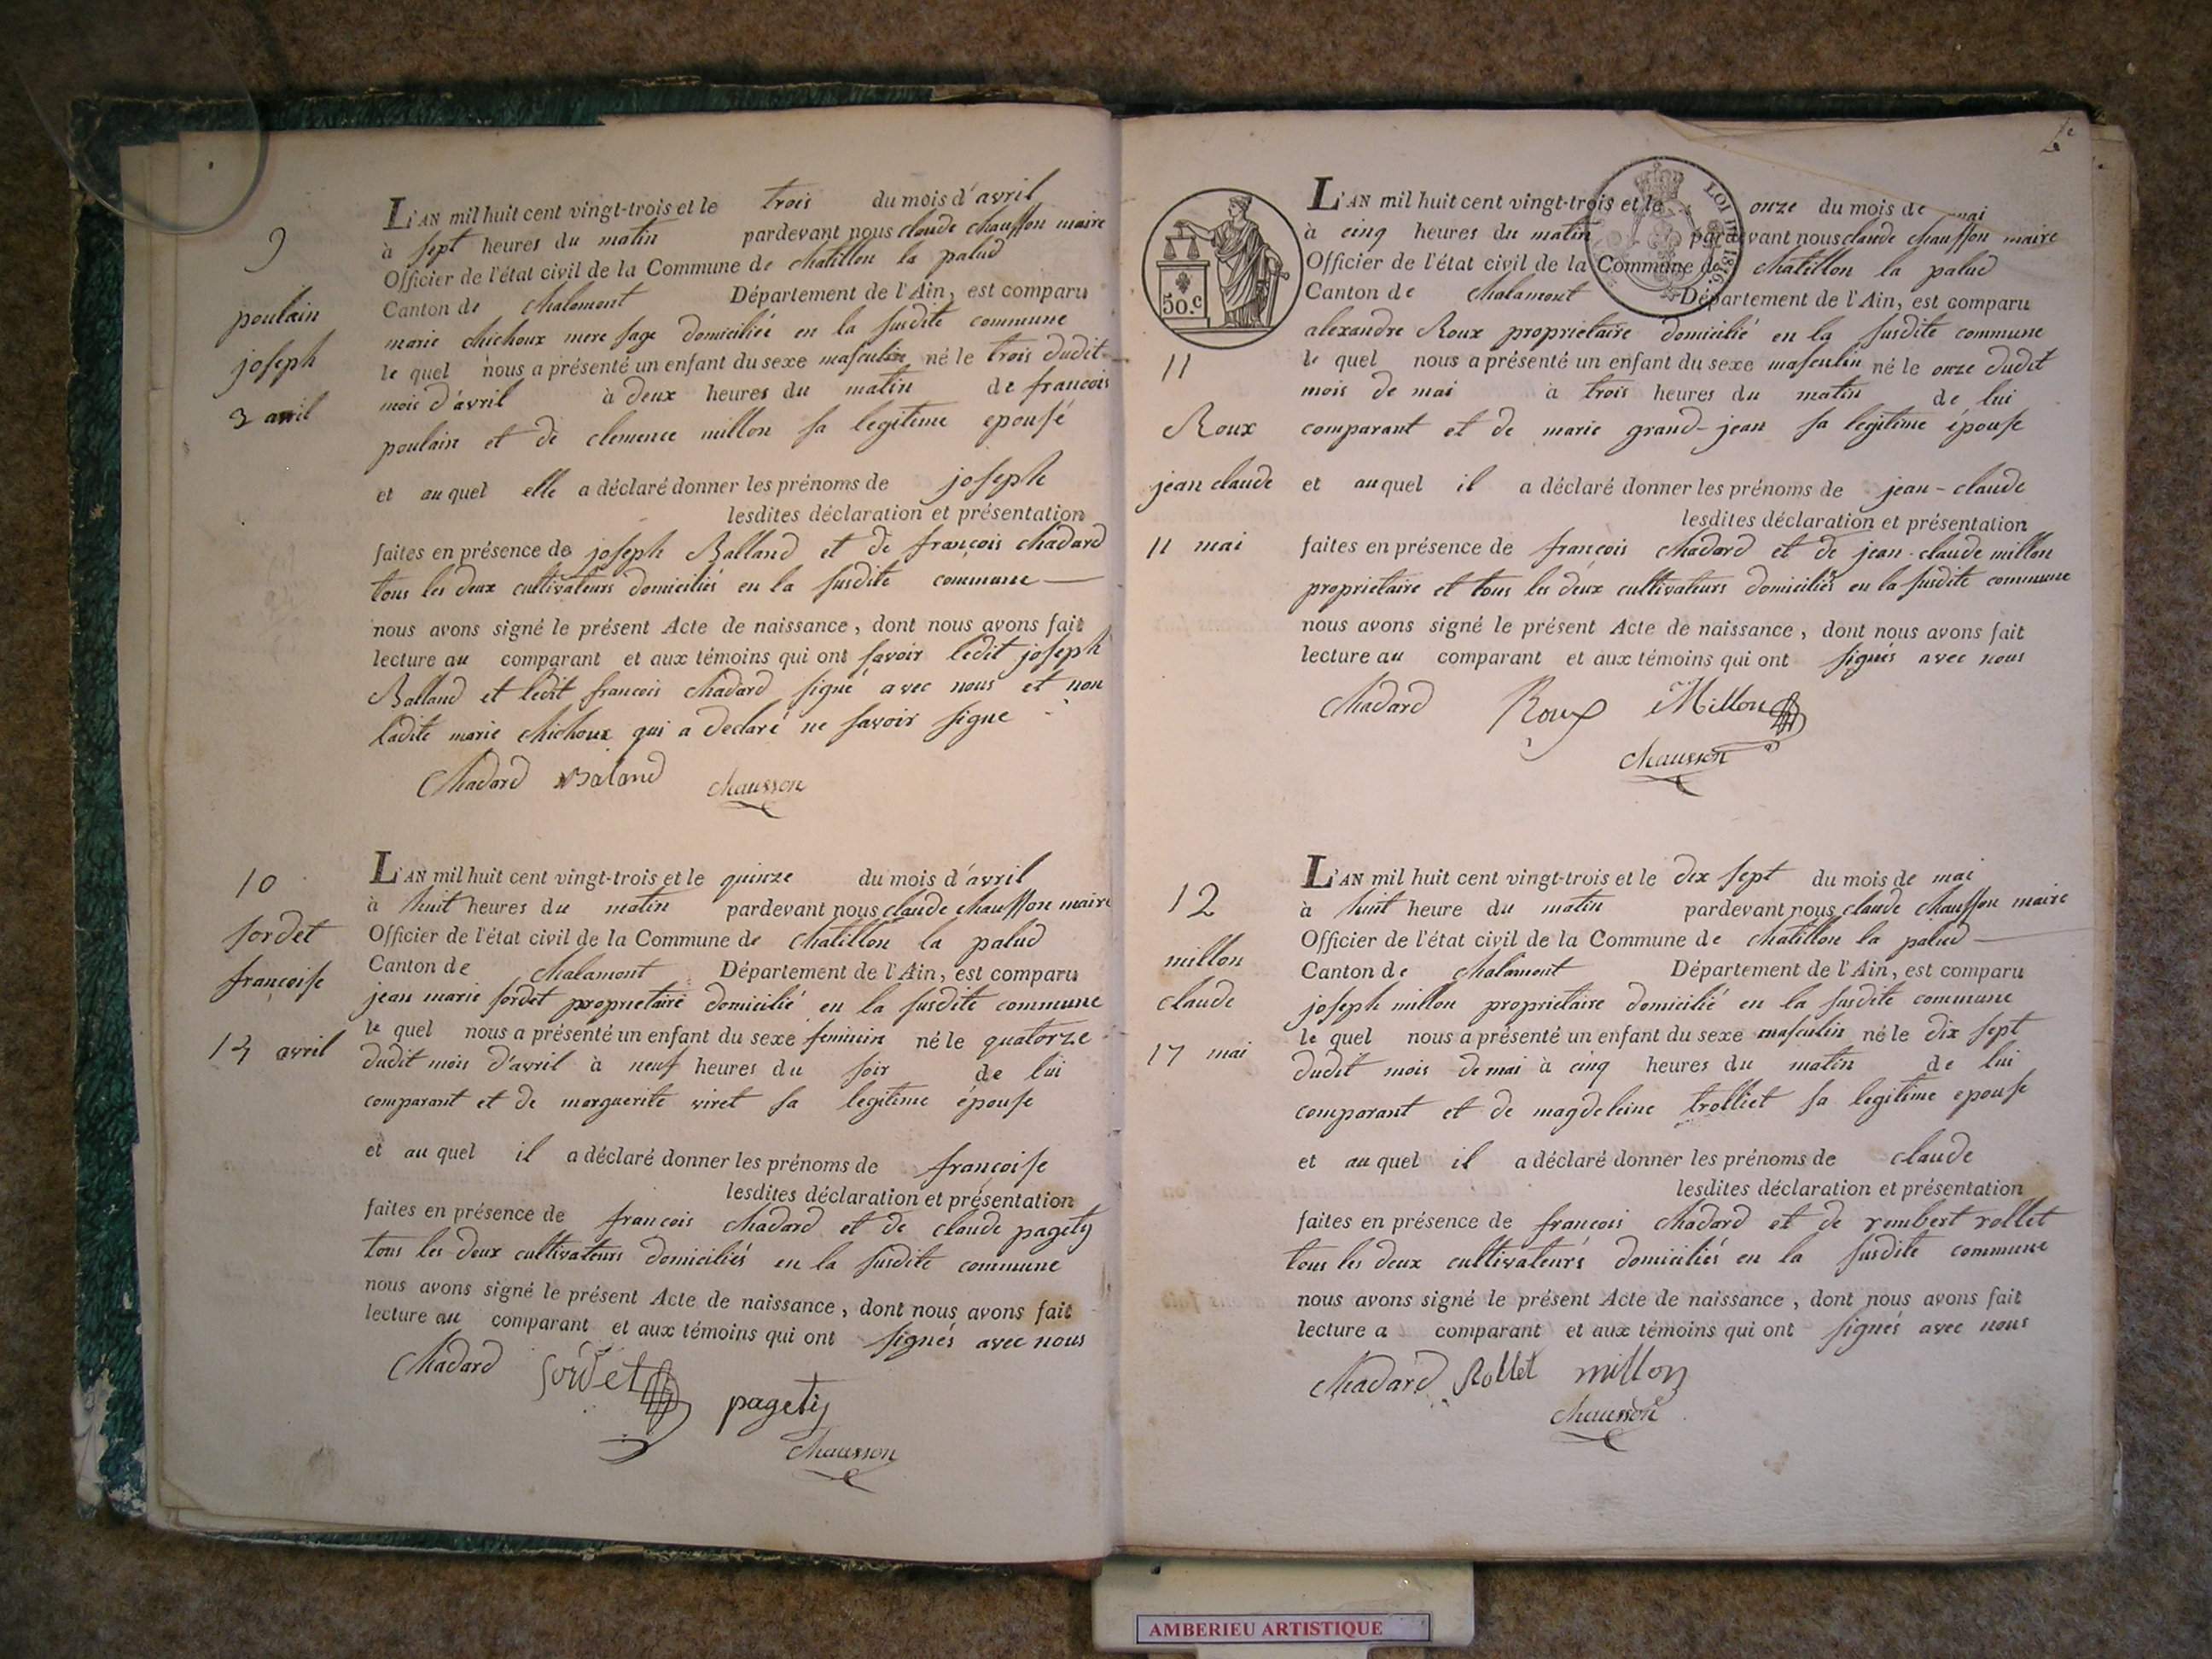 9
poulain
joseph
3 avril
L'AN mil huit cent vingt-trois et le trois du mois d'avril
à sept heures du matin pardevant nous claude chausson maire
Officier de l'état civil de la Commune de chatillon la palud
Canton de chalamont Département de l'Ain, est comparu
marie chichoux mere sage domiciliée en la susdite commune
le quel nous a présenté un enfant du sexe masculin né le trois dudit
mois d'avril à deux heures du matin de francois
poulain et de clemence millon sa legitime epousé
et au quel elle a déclaré donner les prénoms de joseph
lesdites déclaration et présentation
faites en présence de joseph Balland et de françois chadard
tous les deux cultivateurs domiciliés en la susdite commune
nous avons signé le présent Acte de naissance, dont nous avons fait
lecture au comparant et aux témoins qui ont savoir ledit joseph
Balland et ledit francois chadard signé avec nous et non
ladite marie chichoux qui a declaré ne savoir signe
Chadard Baland chausson
10
sordet
françoise
14 avril
L'AN mil huit cent vingt-trois et le quinze du mois d'avril
à huit heures du matin pardevant nous claude chausson maire
Officier de l'état civil de la Commune de chatillon la palud
Canton de chalamont Département de l'Ain, est comparu
jean marie sordet proprietaire domicilié en la susdite commune
le quel nous a présenté un enfant du sexe feminin né le quatorze
dudit mois d'avril à neuf heures du soir de lui
comparant et de marguerite viret sa legitime épouse
et au quel il a déclaré donner les prénoms de françoise
lesdites déclaration et présentation
faites en présence de francois chadard et de claude pagety
tous les deux cultivateurs domiciliés en la susdite commune
nous avons signé le présent Acte de naissance, dont nous avons fait
lecture au comparant et aux témoins qui ont signés avec nous
Chadard Sordet
pagety
chausson
50.c
LOI DE 1816
11
Roux
jean claude
11 mai
L'AN mil huit cent vingt-trois et le onze du mois de mai
à cinq heures du matin pardevant nous claude chausson maire
Officier de l'état civil de la Commune de chatillon la palud
Canton de chalamont Département de l'Ain, est comparu
alexandre Roux proprietaire domicilié en la susdite commune
le quel nous a présenté un enfant du sexe masculin né le onze dudit
mois de mai à trois heures du matin de lui
comparant et de marie grand-jean sa legitime épouse
et au quel il a déclaré donner les prénoms de jean-claude
lesdites déclaration et présentation
faites en présence de françois chadard et de jean-claude millon
proprietaire et tous les deux cultivateurs domiciliés en la susdite commune
nous avons signé le présent Acte de naissance, dont nous avons fait
lecture au comparant et aux témoins qui ont signés avec nous
Chadard Roux Millon
chausson
12
millon
claude
17 mai
L'AN mil huit cent vingt-trois et le dix sept du mois de mai
à huit heure du matin pardevant nous claude chausson maire
Officier de l'état civil de la Commune de chatillon la palud
Canton de chalamont Département de l'Ain, est comparu
joseph millon proprietaire domicilié en la susdite commune
le quel nous a présenté un enfant du sexe masculin né le dix sept
dudit mois de mai à cinq heures du matin de lui
comparant et de magdeleine trolliet sa legitime epouse
et au quel il a déclaré donner les prénoms de claude
lesdites déclaration et présentation
faites en présence de francois chadard et de rembert rollet
tous les deux cultivateurs domiciliés en la susdite commune
nous avons signé le présent Acte de naissance, dont nous avons fait
lecture a comparant et aux témoins qui ont signés avec nous
Chadard Rollet millon
chausson
AMBERIEU ARTISTIQUE